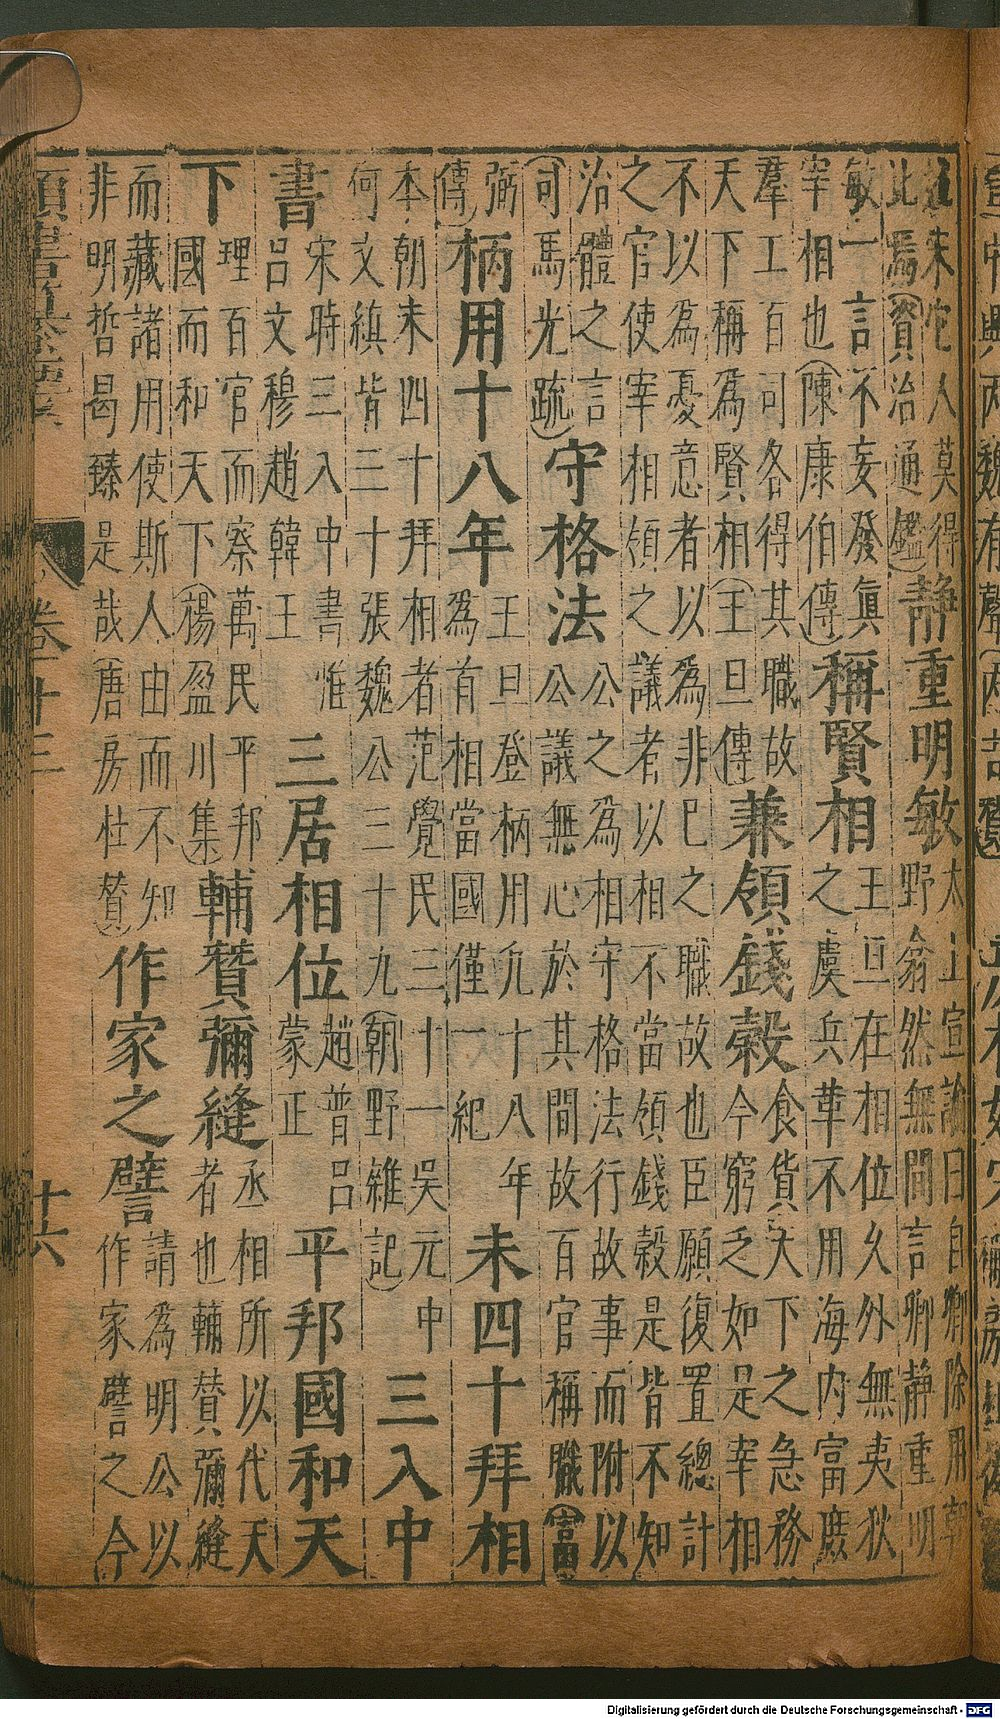 末它人莫得
比焉(資治通鑑)
靜重明敏
太上宣諭曰自卿除用朝
野翕然無間言卿静重明
敏一言不妄發眞
宰相也(陳康伯傳)
稱賢相
王旦在相位久外無夷狄
之虞兵革不用海内富庶
羣工百司各得其職故
天下稱爲賢相(王旦傳)
兼領錢穀
食貨天下之急務
今窮乏如是宰相
不以爲憂意者以爲非已之職故也臣願復置總計
之官使宰相領之議者以相不當領錢穀是皆不知
治體之言
(司馬光疏)
守格法
公之爲相守格法行故事而附以
公議無心於其間故百官稱職(富
弼
傳)
柄用十八年
王旦登柄用凢十八年
爲有相當國僅一紀
未四十拜相
本朝未四十拜相者范覺民三十一吳元中
何文縝皆三十張魏公三十九(朝野雜記)
三入中
書
宋時三入中書惟
吕文穆趙韓王
三居相位
趙普吕
蒙正
平邦國和天
下
理百官而察萬民平邦
國而和天下(楊盈川集)
輔贊彌縫
丞相所以代天
者也輔贊彌縫
而藏諸用使斯人由而不知
非明哲曷臻是哉(唐房杜贊)
作家之譬
請爲明公以
作家譬之今
卷二十三
十六
Digitalisierung gefördert durch die Deutsche Forschungsgemeinschaft - DFG